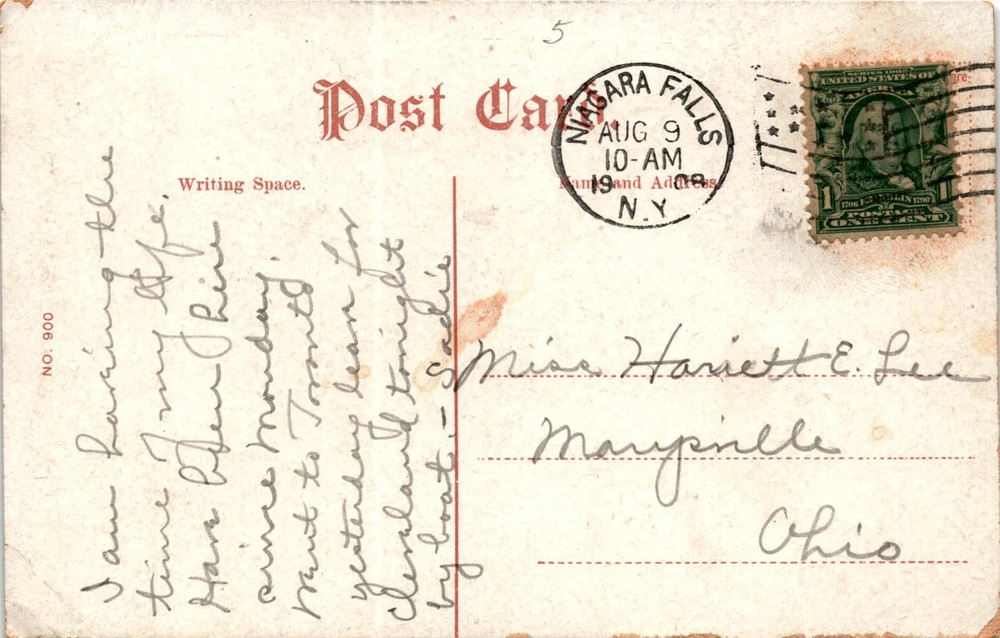 5
Post Card.
Writing Space.
Name and Address
NIAGARA FALLS
AUG 9
10-AM
19 08
N.Y.
SERIES 1902
UNITED STATES OF
AMERICA
1 1
1706 FRANKLIN 1790
POSTAGE
ONE CENT
here
NO. 900
I am having the
time of my life.
Have been here
since Monday.
Went to Toronto
yesterday leave for
Cleveland tonight
by boat. - Sadie
Miss Harriett E. Lee
Marysville
Ohio